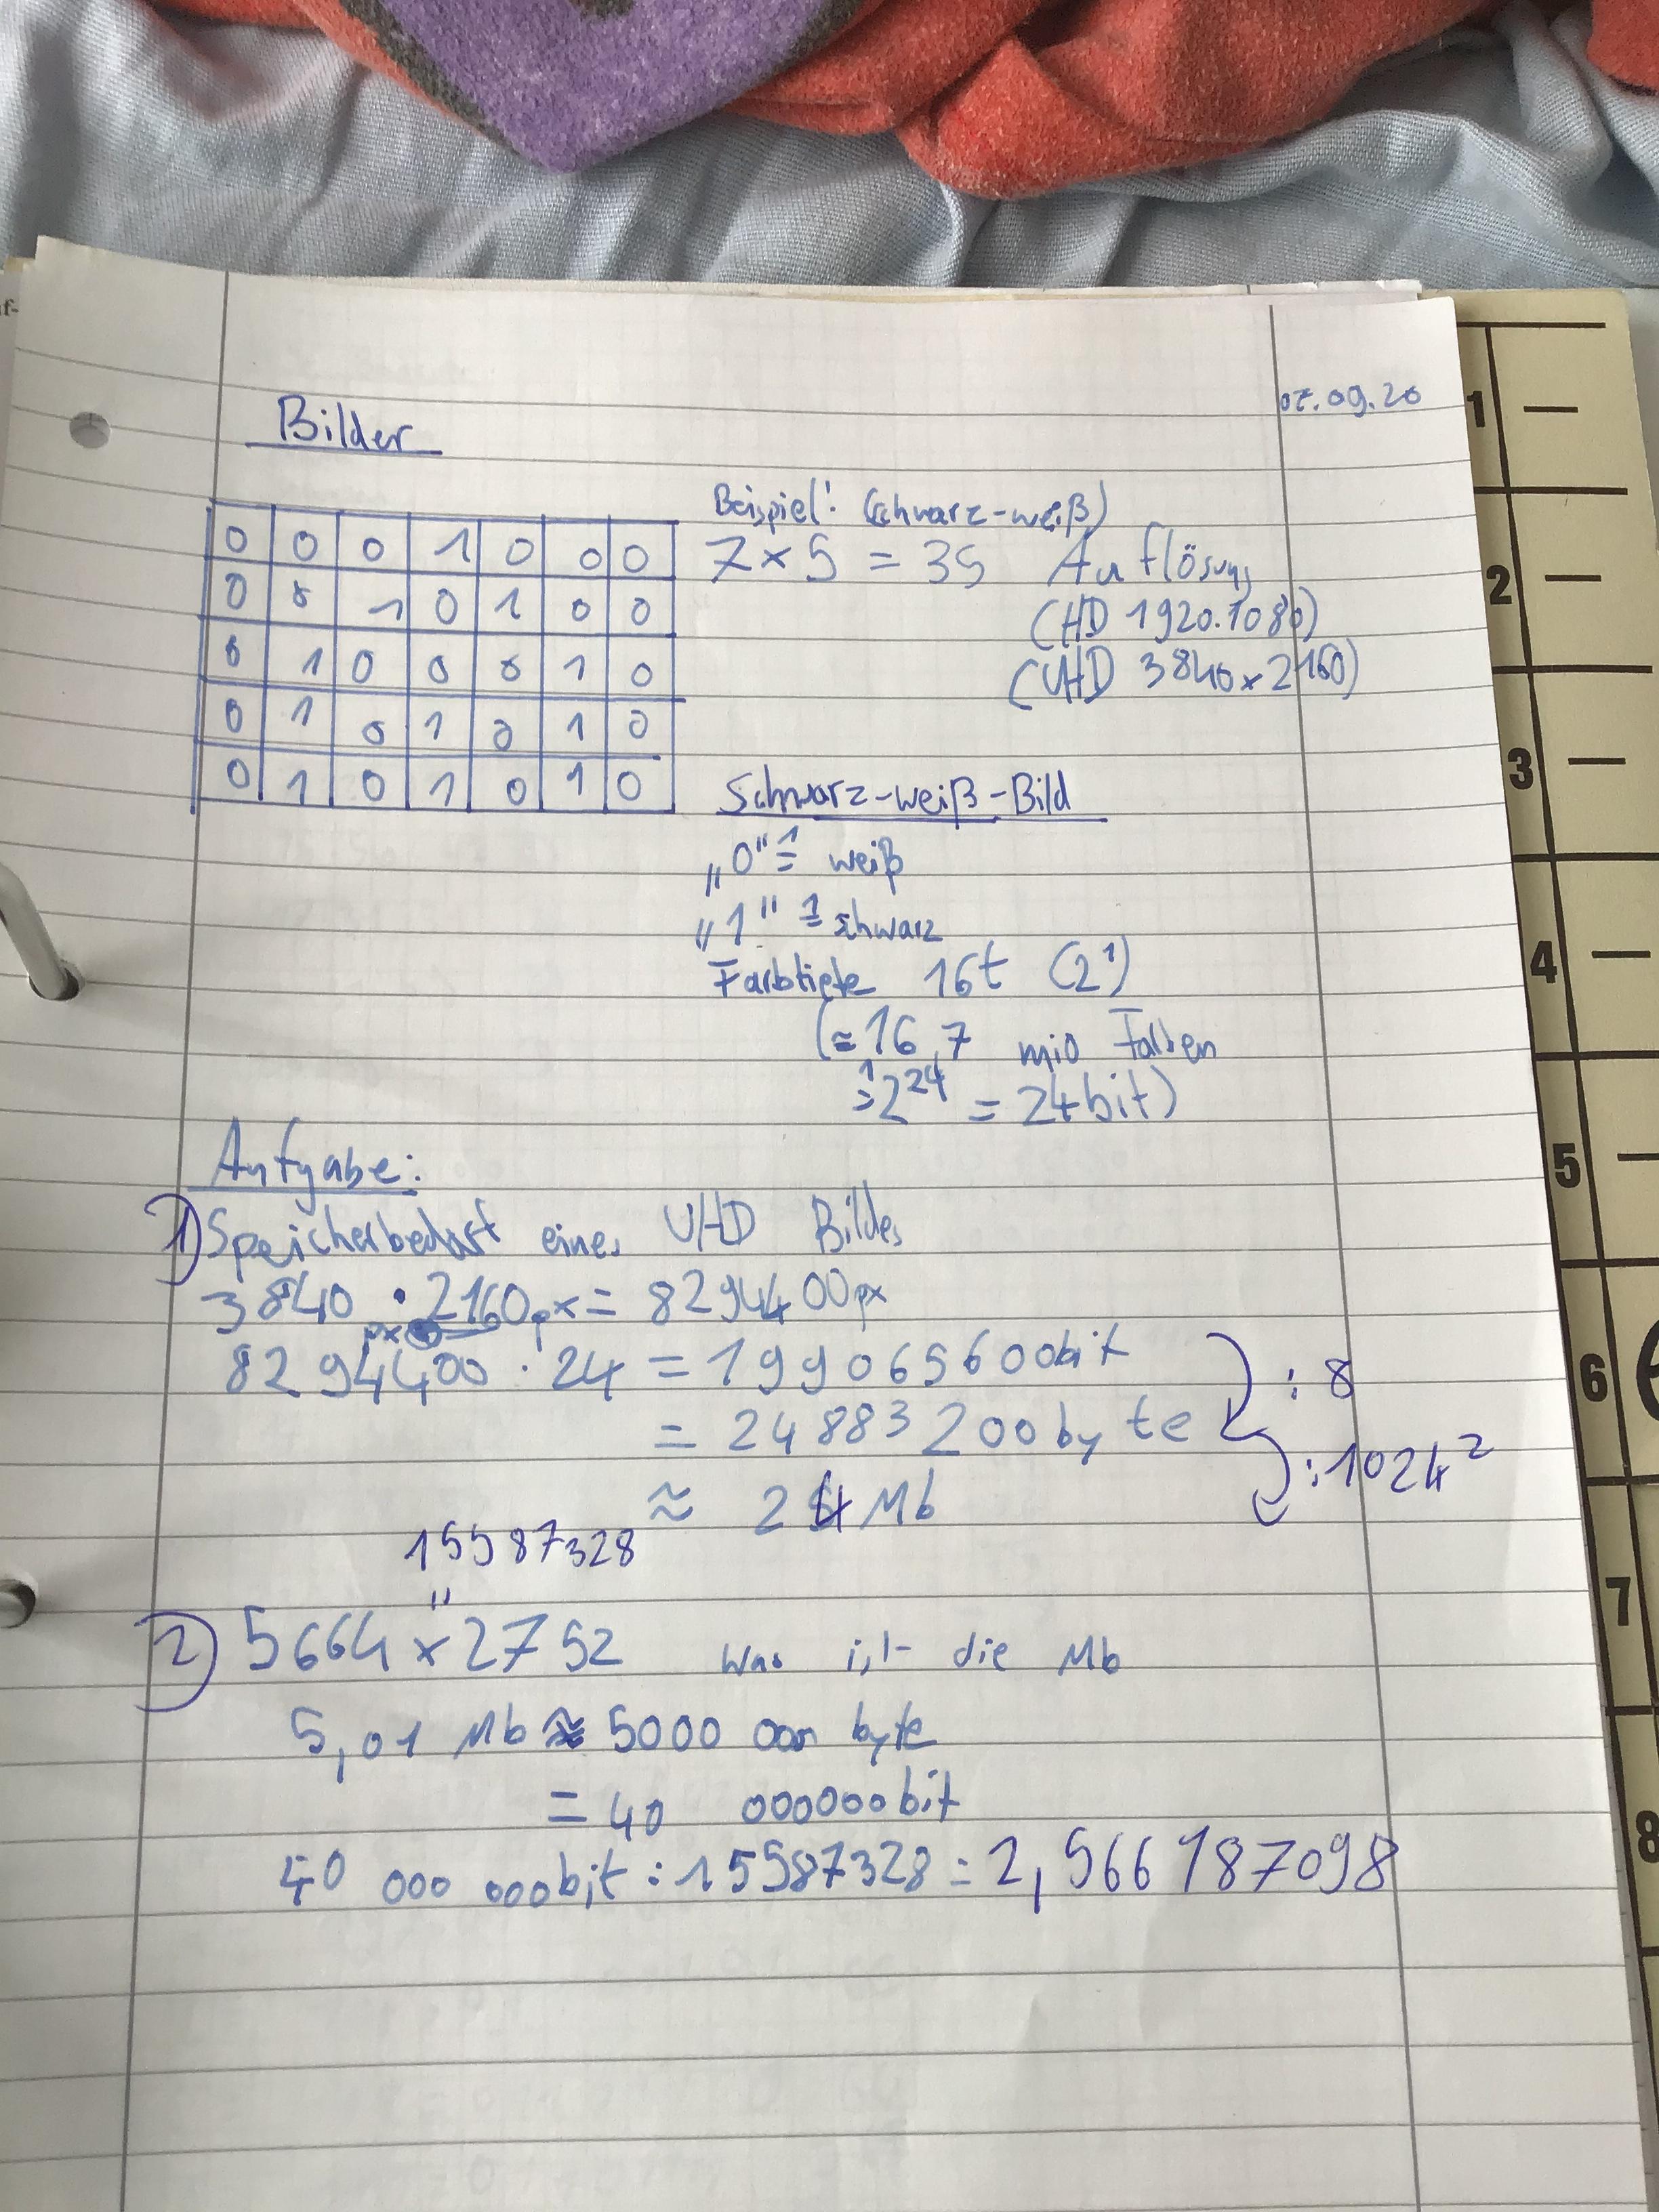 Bilder
07.09.20
0 0 0 1 0 0 0
0 0 1 0 1 0 0
0 1 0 0 0 1 0
0 1 0 1 0 1 0
0 1 0 1 0 1 0
Beispiel: (schwarz-weiß)
7 x 5 = 35 Auflösung
(HD 1920.1080)
(UHD 3840 x 2160)
Schwarz-weiß-Bild
„0" ≙ weiß
„1" ≙ schwarz
Farbtiefe 16t (2¹)
(≈ 16,7 mio Farben
≙ 2²⁴ = 24bit)
Aufgabe:
1) Speicherbedarf eines UHD Bildes
3840 · 2160px = 8294400px
px
8294400 · 24 = 199065600bit
: 8
= 24883200byte
: 1024²
≈ 24 Mb
15587328
"
2) 5664 x 2752 Was ist die Mb
5,01 Mb ≈ 5000 000 byte
= 40 000000bit
40 000 000bit : 15587328 = 2,566187098
1
2
3
4
5
6
7
8